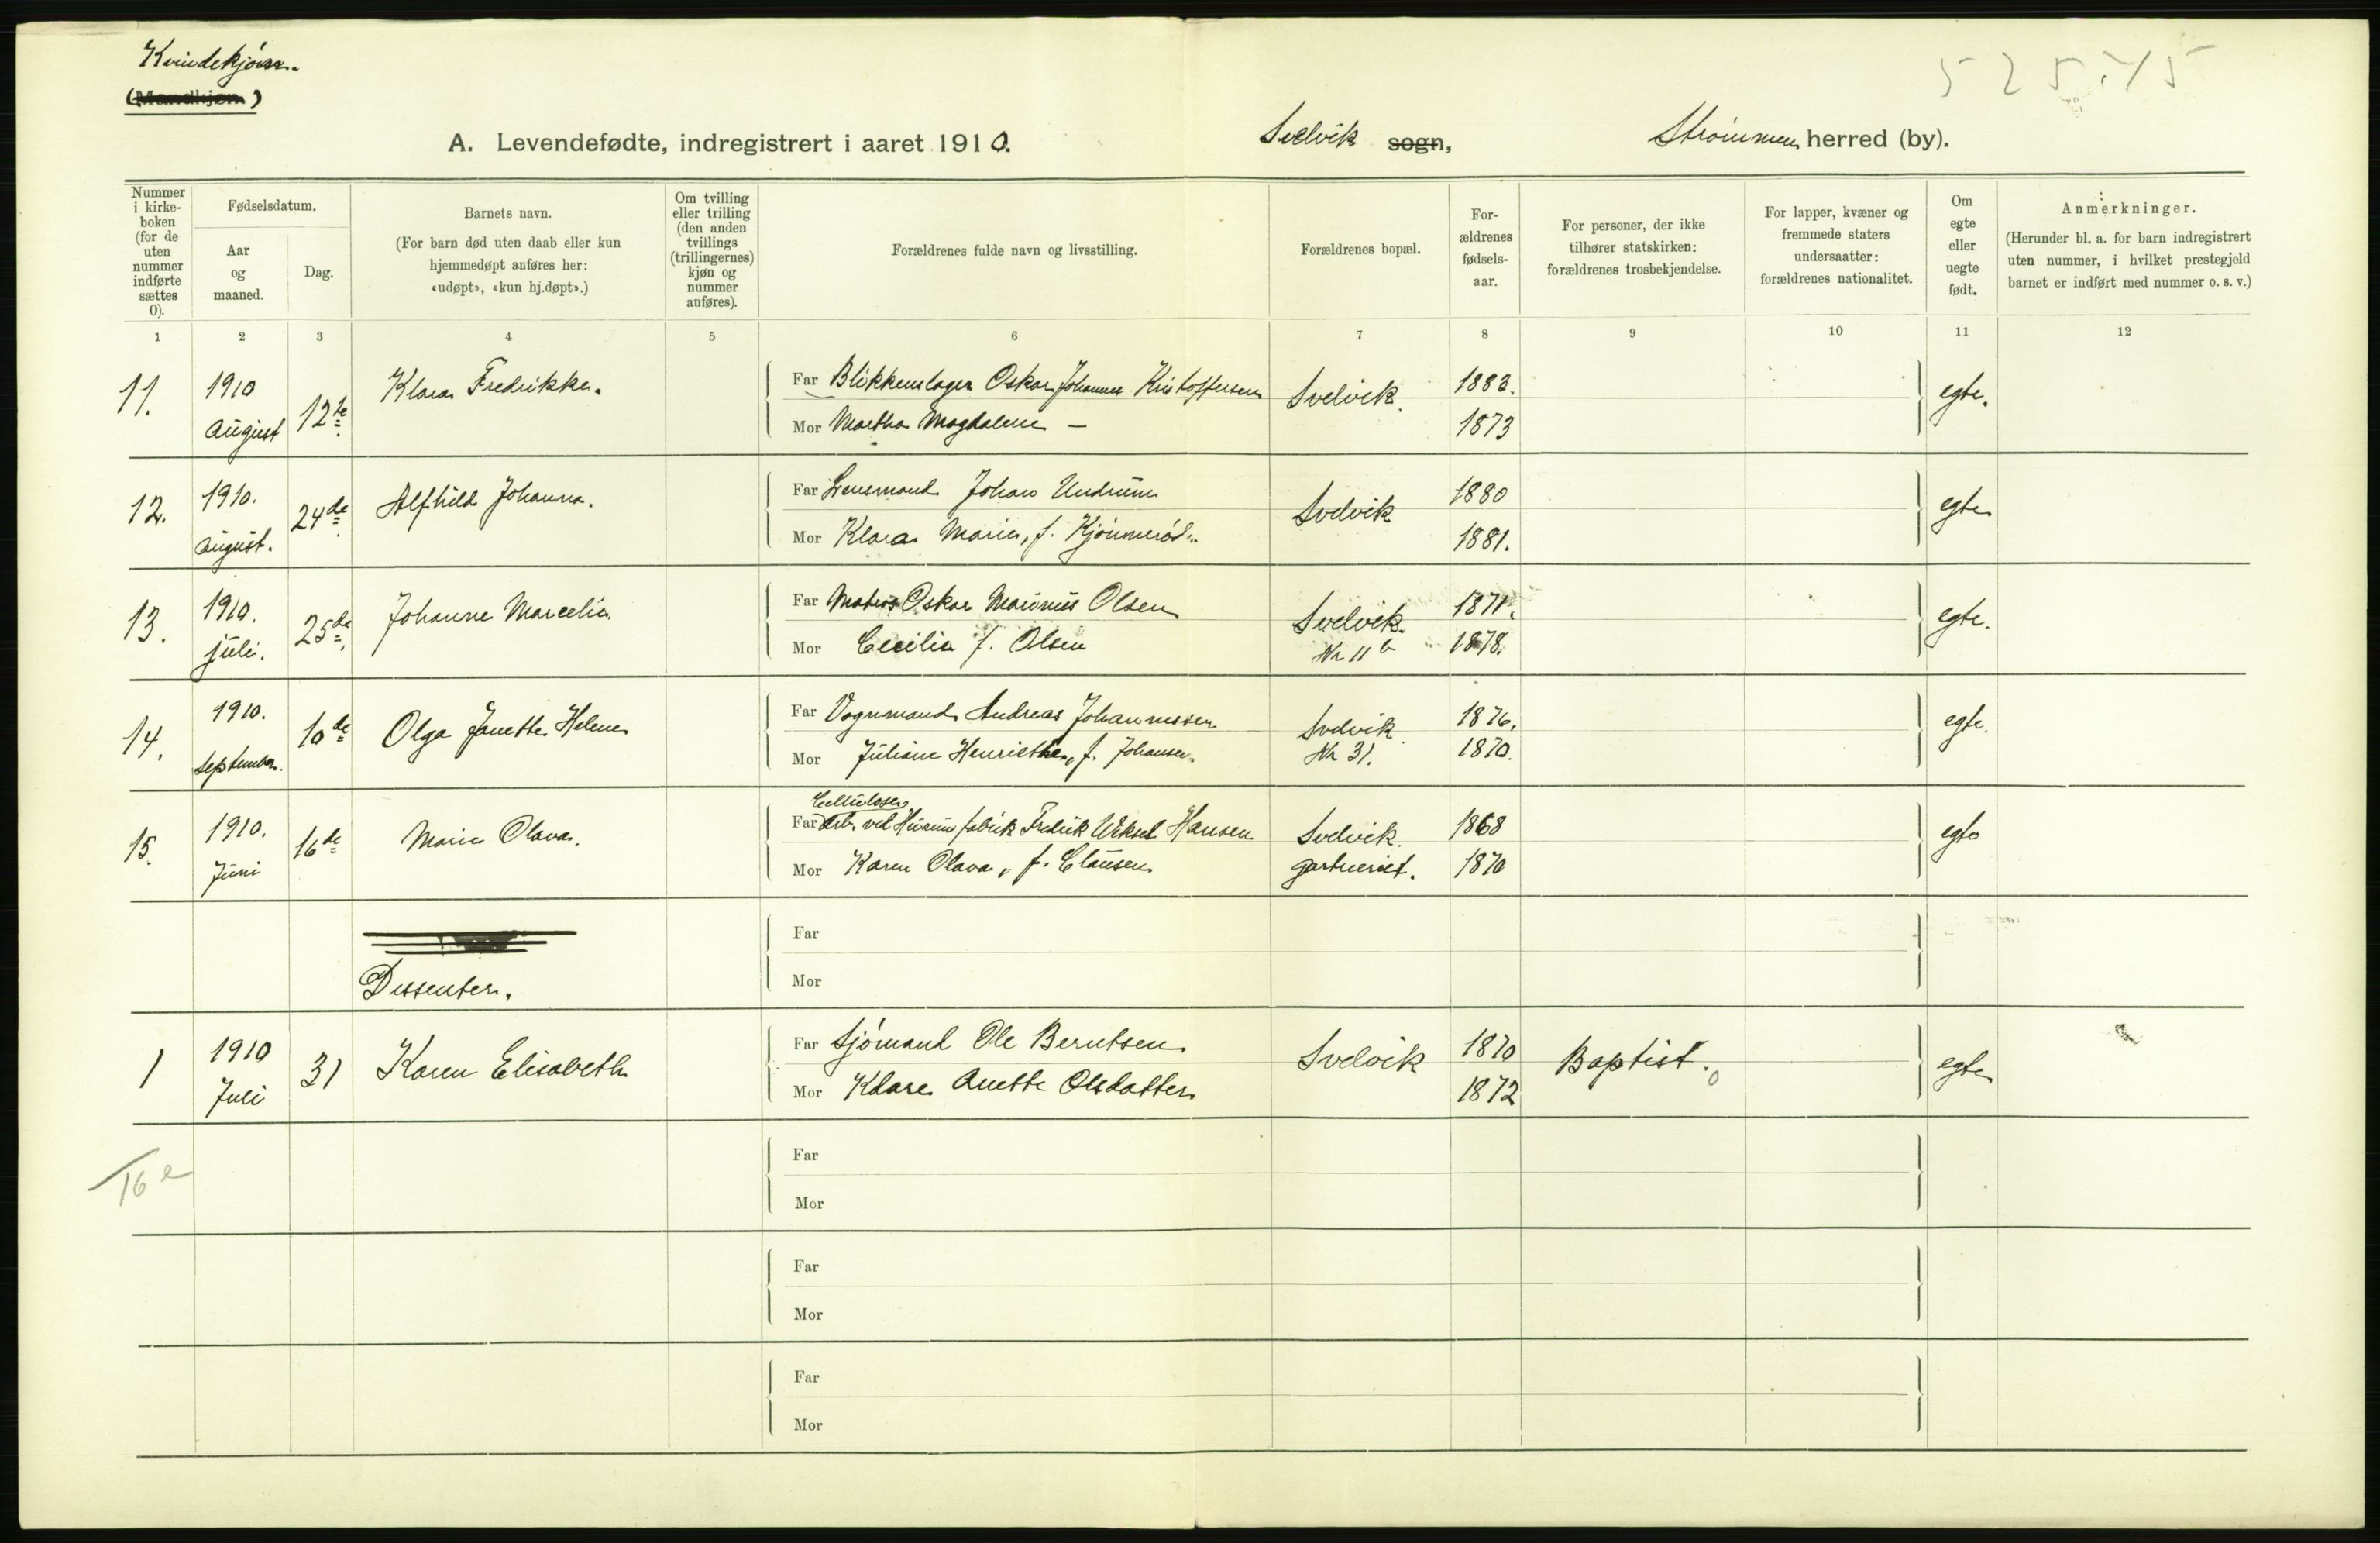 Kvindekjøn.
(Mandkjøn.)
A. Levendefødte, indregistrert i aaret 1910.
Svelvik sogn,
Strømmen herred (by).
Nummer i kirke-boken (for de uten nummer indførte sættes 0).
Fødselsdatum.
Aar og maaned.
Dag.
Barnets navn.
(For barn død uten daab eller kun hjemmedøpt anføres her: «udøpt», «kun hj.døpt».)
Om tvilling eller trilling (den anden tvillings (trillingernes) kjøn og nummer anføres).
Forældrenes fulde navn og livsstilling.
Forældrenes bopæl.
For-ældrenes fødsels-aar.
For personer, der ikke tilhører statskirken: forældrenes trosbekjendelse.
For lapper, kvæner og fremmede staters undersaatter: forældrenes nationalitet.
Om egte eller uegte født.
Anmerkninger.
(Herunder bl. a. for barn indregistrert uten nummer, i hvilket prestegjeld barnet er indført med nummer o. s. v.)
1 2 3 4 5 6 7 8 9 10 11 12
11. 1910 August 12te Klara Fredrikke.
Far Blikkenslager Oskar Johannes Kristoffersen Svelvik. 1883. egte.
Mor Martha Magdalene — 1873
12. 1910. August. 24de Alfhild Johanna.
Far Lensmand Johan Undrum Svelvik 1880 egte
Mor Klara Marie, f. 1881.
13. 1910. juli. 25de Johanne Marcelia
Far Matros Oskar Marinius Olsen Svelvik. 1871. egte.
Mor Cecilia f. Olsen Nr 11 b 1878.
14. 1910. September. 10de Olga Janette Helene
Far Vognmand Andreas Johannessen Svelvik. 1876. egte.
Mor Juliane Henriethe, f. Johansen. Nr 31. 1870.
15. 1910. Juni 16de Marie Olava.
Cellulose
Far arb. ved Hurum fabrik Fredrik Hansen Svelvik. 1868 egte
Mor Karen Olava, f. Clausen gartneriet. 1870
Far
Mor
Dissenter.
1 1910 Juli 31 Karen Elisabeth
Far Sjømand Ole Berntsen Svelvik 1870 Baptist. egte
Mor Klara Anette Olsdatter 1872
Far
Mor
16
Far
Mor
Far
Mor